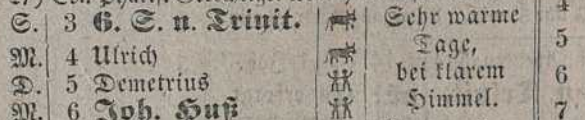 S. 3 G. S. n. Trinit. Sehr warme 4
M. 4 Ulrich Tage, 5
D. 5 Demetrius bei klarem 6
M. 6 Joh. Huß Himmel. 7